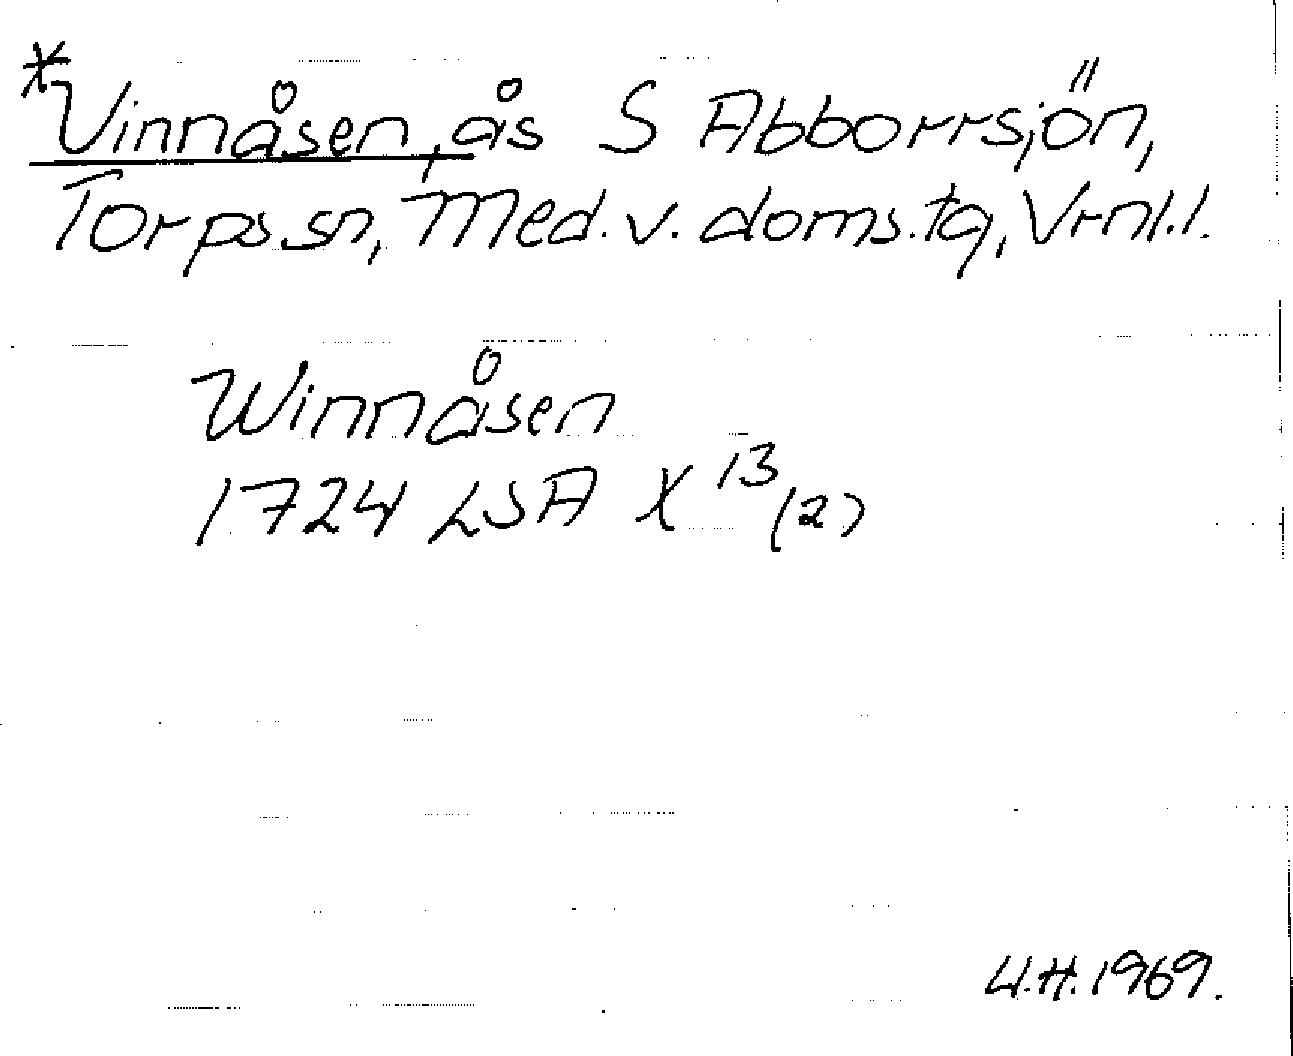 *Vinnåsen, ås S Abborrsjön,
Torps sn, Med. v. doms. tg, Vrnl. l.
Winnåsen
1724 LSA X 13 (2)
U.H. 1969.